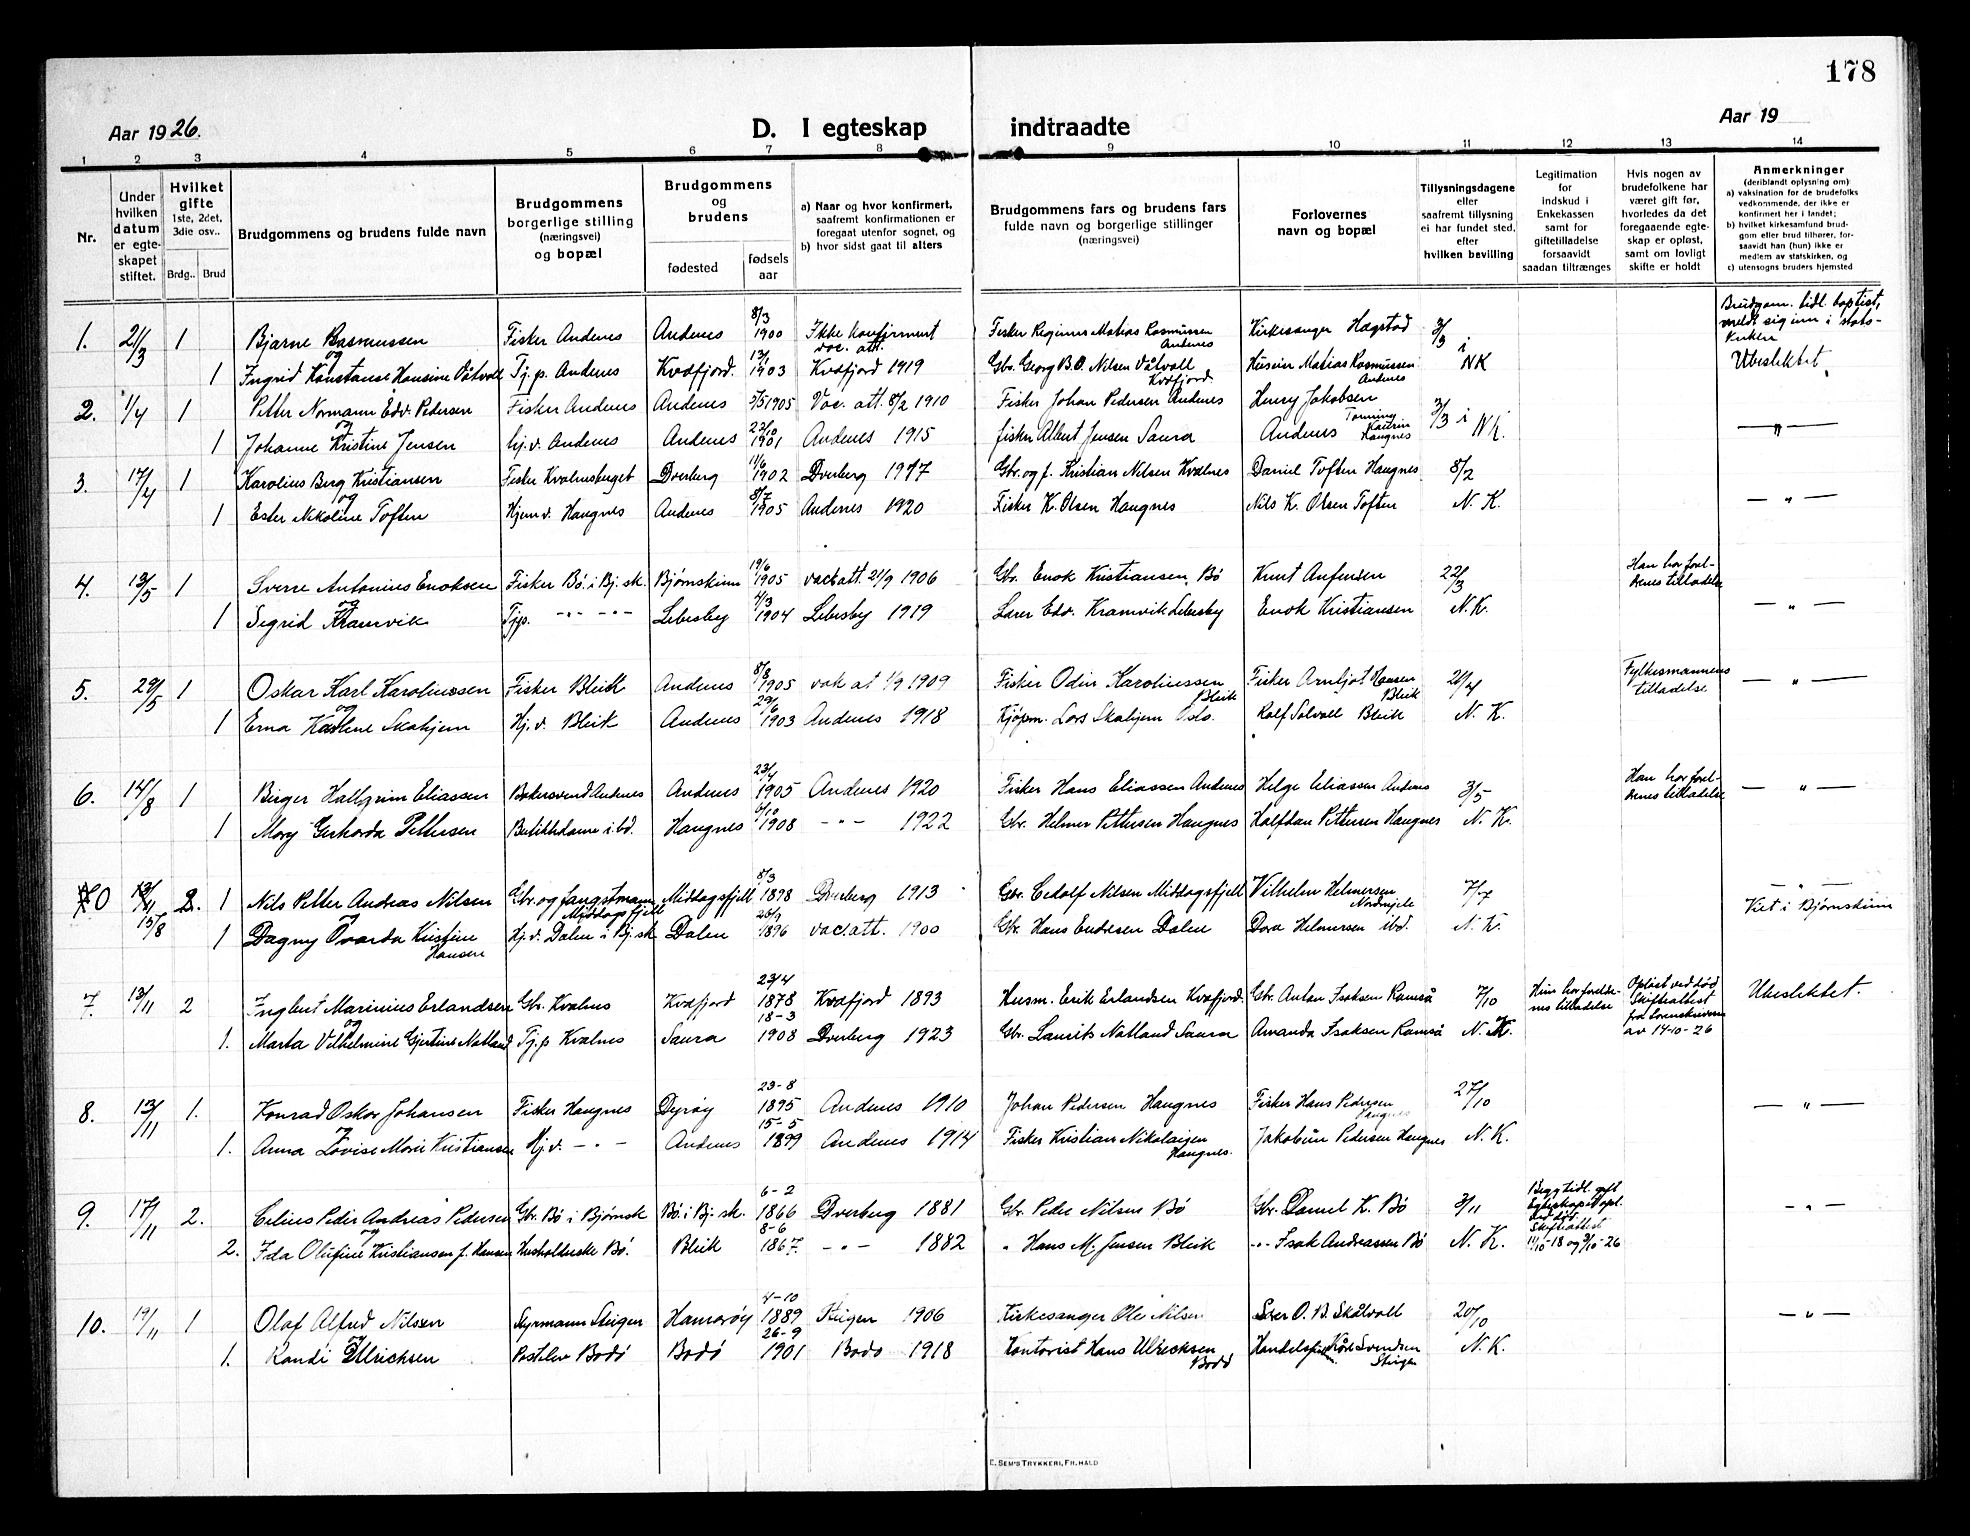 178
Aar 1926.
D. I egteskap indtraadte
Aar 19
1 2 3 4 5 6 7 8 9 10 11 12 13 14
Nr.
Under hvilken datum er egteskapet stiftet.
Hvilket gifte 1ste, 2det, 3die osv..
Brdg.. Brud
Brudgommens og brudens fulde navn
Brudgommens borgerlige stilling (næringsvei) og bopæl
Brudgommens og brudens
fødested
fødselsaar
a) Naar og hvor konfirmert, saafremt konfirmationen er foregaat utenfor sognet, og
b) hvor sidst gaat til alters
Brudgommens fars og brudens fars fulde navn og borgerlige stillinger (næringsvei)
Forlovernes navn og bopæl
Tillysningsdagene eller saafremt tillysning ei har fundet sted, efter hvilken bevilling
Legitimation for indskud i Enkekassen samt for giftetilladelse forsaavidt saadan tiltrænges
Hvis nogen av brudefolkene har været gift før, hvorledes da det foregaaende egteskap er opløst, samt om lovligt skifte er holdt
Anmerkninger (deriblandt oplysning om)
a) vaksination for de brudefolks vedkommende, der ikke er konfirmert her i landet;
b) hvilket kirkesamfund brudgom eller brud tilhører, forsaavidt han (hun) ikke er medlem av statskirken, og
c) utensogns bruders hjemsted
1. 21/3 1 Bjarne Rasmussen Fisker Andenes Andenes 8/3 1900 Ikke konfirmert vac. att. Fisker Reginus Matias Rasmussen Andenes Kirkesanger Hagstad 3/3 i Brudgom. tidl. baptist, meldt sig inn i statskirken
og
1 Ingrid Konstanse Hansine Våtvoll Tj. p. Andenes Kvæfjord. 13/1 1903 Kvæfjord 1919 Gbr. Georg B.O. Nilsen Våtvoll Kvæfjord Huseier Matias Rasmussen Andenes NK Ubeslektet.
2. 1/4 1 Petter Normann Edv. Pedersen Fisker Andenes Andenes 7/5 1905 Vac. att. 8/2 1910 Fisker Johan Pedersen Andenes Henry Jakobsen 3/3 i
og
1 Johanne Kristine Jensen hj.v. Andenes Andenes 23/10 1901 Andenes 1915 fisker Albert Jensen Saura Andenes Haugnes NK. — " —
3. 17/4 1 Karolius Berg Kristiansen Fisker Kvalnesberget Dverberg 11/6 1902 Dverberg 1917 Gbr. og f. Kristian Nilsen Kvalnes Daniel Toften Haugnes 8/2
og
1 Ester Nikoline Toften Hjem v. Haugnes Andenes 8/7 1905 Andenes 1920 Fisker K. Olsen Haugnes Nils K. Olsen Toften N. K. — " —
4. 13/5 1 Sverre Antonius Enoksen Fisker Bø. i Bj. sk. Bjørnskinn 19/6 1905 vac. att. 21/9 1906 Gbr. Enok Kristiansen, Bø Knut Anfensen 22/3 Han har foreldrenes tilladelse
og
1 Sigrid Kramvik Tjp. -"- -"- Lebesby 4/3 1904 Lebesby 1919 Lærer Edv. Kramvik Lebesby Enok Kristiansen N.K. — " —
5. 29/5 1 Oskar Karl Karoliussen Fisker Bleik Andenes 8/8 1905 vak at 1/9 1909 Fisker Odin Karoliussen Bleik Fisker Arnljot Hansen Bleik 21/4 Fylkesmannens tilladelse — " —
og
1 Erna Karline Skahjem Hj. v. Bleik Andenes 29/6 1903 Andenes 1918 Kjøpm. Lars Skahjem Oslo. Rolf Solvoll Bleik N. K.
6. 14/8 1 Birger Hallgrim Eliassen Bakersvend Andenes Andenes 23/4 1905 Andenes 1920 Fisker Hans Eliassen Andenes Helge Eliassen Andenes 3/5 Han har foreldrenes tilladelse — " —
1 Mary Gerharda Pettersen Butikkdame ibd. Haugnes 6/10 1908 -"- 1922 Gbr. Helmer Pettersen Haugnes Halfdan Pettersen Haugnes N. K.
0 15/8 1 Nils Petter Andreas Nilsen Gbr. og fangstmann Middagsfjell Middagsfjell 8/3 1898 Dverberg 1913 Gbr. Cedolf Nilsen Middagsfjell Vilhelm Helmersen Nordmjele 7/7 — " —
og
1 Dagny Ovarda Kristine Hansen Hj. v. Dalen i Bj. sk Dalen 1896 vac. att. 1900 Gbr. Hans Endresen Dalen Dora Helmersen ibd. N. K. Viet i Bjørnskinn
7. 13/11 2 Ingbert Marinius Erlandsen Gbr. Kvalnes Kvæfjord 23/4 1878 Kvæfjord 1893 Husm. Erik Erlandsen Kvæfjord. Gbr. Anton Isaksen Ramså 7/10 Hun har foreldrenes tilladelse Opløst ved død Skifteattest fra Sorenskriveren av 14-10-26 Ubeslektet.
og
1. Marta Vilhelmine Gjertine Natland Tj. p Kvalnes Saura 18-3 1908 Dverberg 1923 Gbr. Laurits Natland Saura Amanda Isaksen Ramså N. K.
8. 13/11 1. Konrad Oskar Johansen Fisker Haugnes Dyrøy 23-8 1895 Andenes 1910 Johan Pedersen Haugnes Fisker Hans Pedersen Haugnes 27/10 — " —
og
1. Anna Lovise Marie Kristiansen Hj.v. -"- Andenes 15-5 1899 Andenes 1914 Fisker Kristian Nikolaisen Haugnes. Jakobine Pedersen Haugnes N. K.
9. 17/11 2. Celius Peder Andreas Pedersen Gbr. Bø i Bjørnsk Bø i Bj. sk. 6-2 1866 Dverberg 1881 Gbr. Peder Nilsen Bø Gbr. Daniel K. Bø 3/11 Begge tidl. gift Egteskapet opl. ved død. Skifteattest 11/10-18 og 3/10-26 - " -
og
2. Ida Olufine Kristiansen f. Hansen Husholderske Bø. Bleik 8-6 1867. -"- 1882 " Hans M. Jensen Bleik -"- Isak Andreassen Bø N. K.
10. 19/11 1 Olaf Alfred Nilsen Styrmann Steigen Hamarøy 4-10 1889 Steigen 1906 Kirkesanger Ole Nilsen Lærer O. B. Skålvoll 20/10 — " —
og
1. Randi Ulricksen Postelev Bodø Bodø 26-9 1901 Bodo 1918 Kontorist Hans Ulricksen Bodø Kåre Svendsen Steigen N. K.
E. SEM'S TRYKKERI, FR.HALD